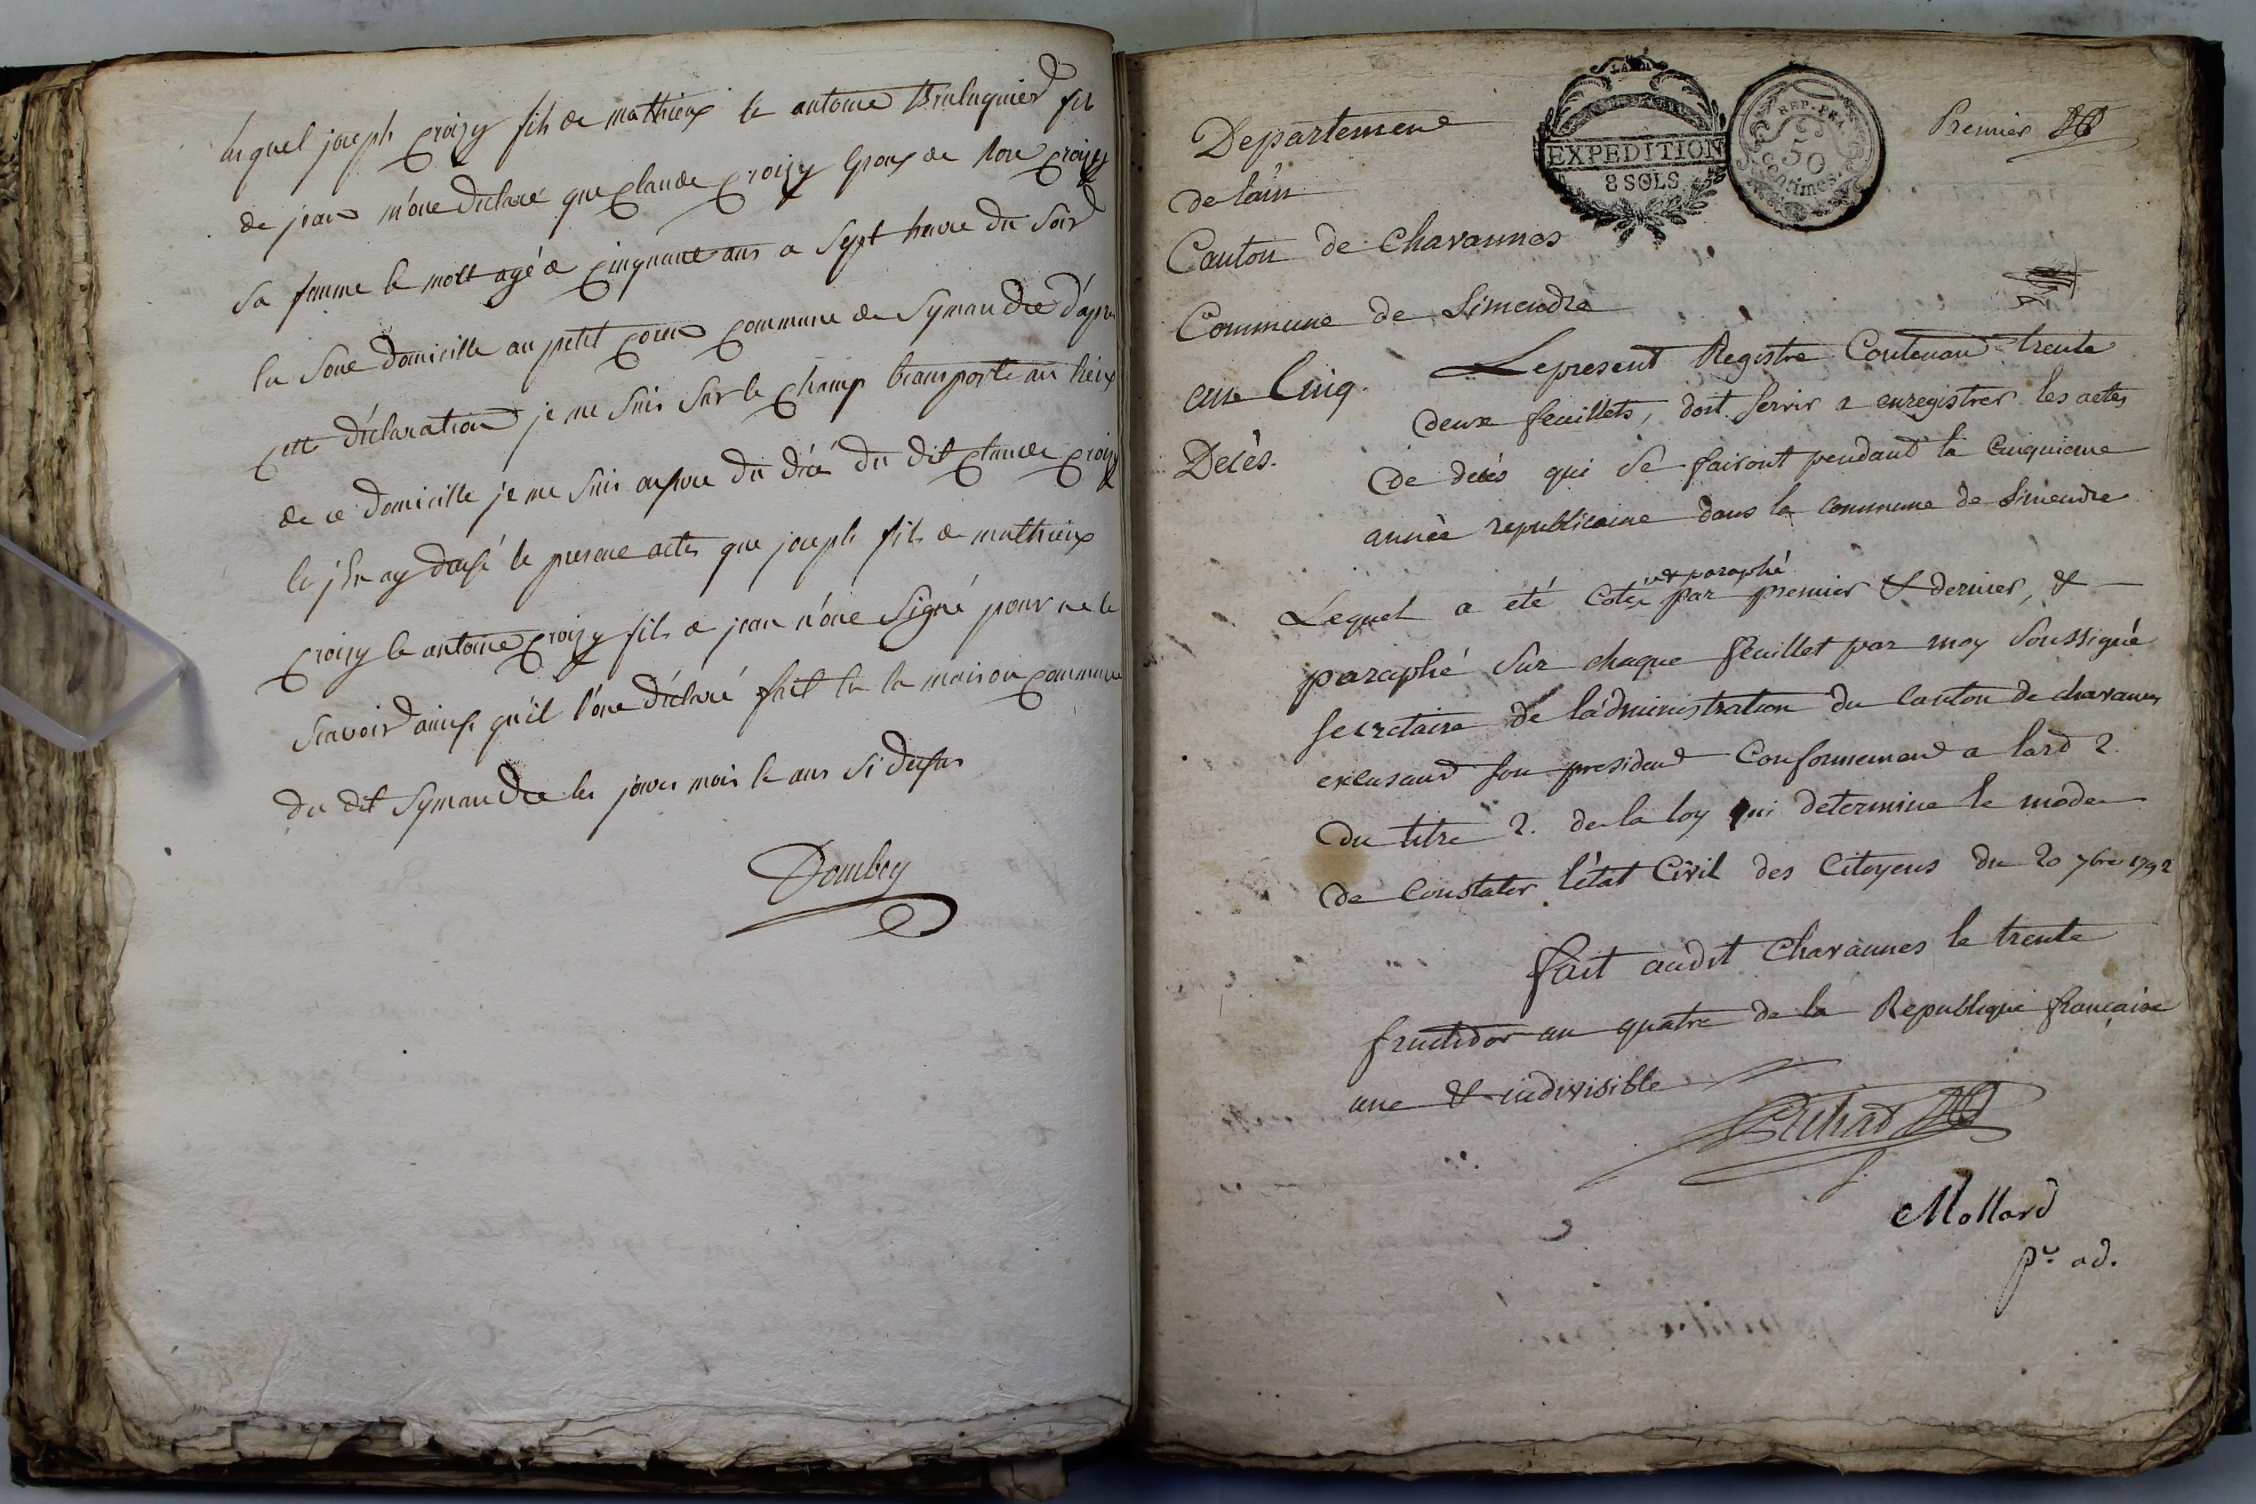 lesquel joseph croizy fils de mathieux et antoine fils
de jean m'one déclaré que claude croizy Epoux de croizy
sa femme le mort agé de cinquante ans a sept heure du soir
en sone domicille au petit commune de Symandre d'apre
cette déclaration je me suis sur le champ transporté au lieux
de ce domicille je me suis assure du décé du dit claude croizy
et j'en ay dressé le presene actes que joseph fils de mathieux
croizy et antoine croizy fils de jean n'one signé pour ne le
scavoir ainsy qu'il l'one déclaré fait en la maison commune
du dit Symandre les jours mois et ans si dessus
Dombey
LAIN
EXPEDITION
8 SOLS
REP. FRA.
50
centimes.
Premier
Departement
de lain
Canton de Chavannes
Commune de Simendre
an Cinq.
Decès.
Le present Registre Contenant trente
deux feuillets, doit servir a enregistrer les actes
de decès qui se fairont pendant la cinquieme
année republicaine dans la commune de Simendre
Lequel a eté coté et paraphé par premier & dernier, &
paraphé sur chaque feuillet par moy soussigné
secretaire de l'administration du canton de chavannes
excusant son president conformement a lart 2.
du titre 2. de la loy qui determine le mode
de constater l'état civil des Citoyens du 20 7bre 1792
fait audit Chavannes le trente
fructidor an quatre de la Republique francaise
une & indivisible
Mollard
pr. ad.